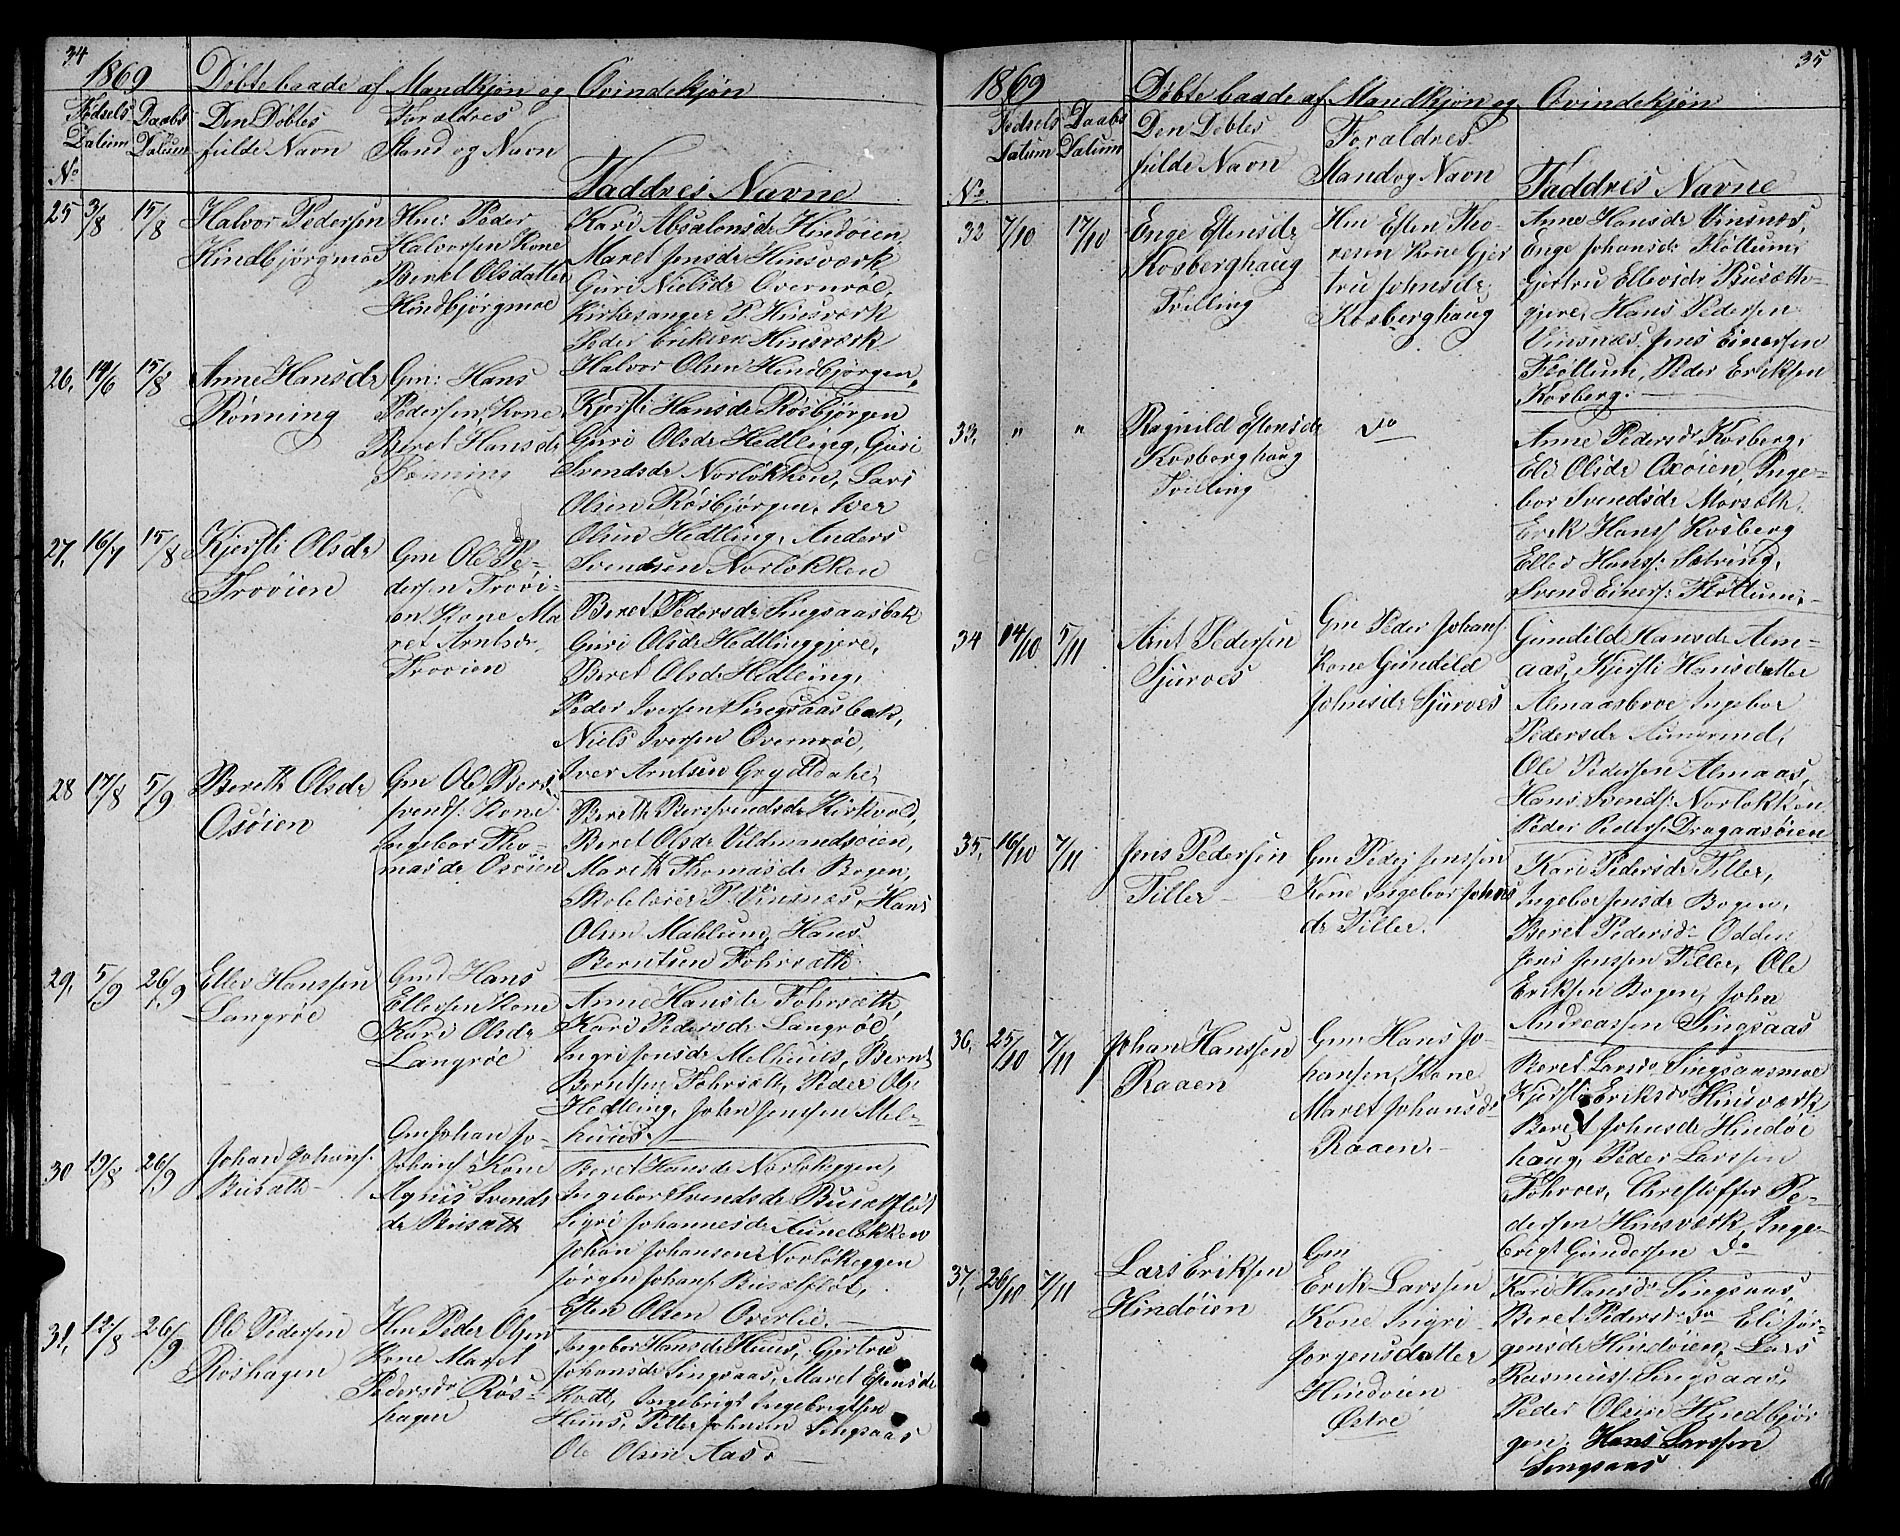 34
1869 Döbte baade af Mandkjön og Qvindekjön
Födsels Datum
Daabs Datum
Den Döbtes fulde Navn
Foraldres Stand og Navn
Faddres Navne
No
25 3/8 15/8
Halvor Pedersen
Hindbjörgmoe
Hm: Peder
Halvorsen Kone
Beret Olsdatter
Hindbjörgmoe
Kari Absalonsdr Hindöien,
Maret Jensdr Hinsværk
Guri Nielsdr Overnröe,
Kirkesanger P. Hinsværk
Peder Eriksen Hinsværk
Halvor Olsen Hindbjörgen,
26, 14/6 15/8
Anne Hansdr
Rönning
Gm: Hans
Pedersen, Kone
Beret Hansdr
Rönning
Kjersti Hansdr Rösbjörgen
Guri Olsdr Hedling, Guri
Svendsdr Norlökken, Lars
Olsen Rösbjörgen, Iver
Olsen Hedling, Anders
Svendsen Norlökken
27, 16/7 15/8
Kjersti Olsdr
Troöien
Gm Ole Pe-
dersen Troöi-
en Kone Ma
ret Arntsdr
Troöien
Beret Pedersdr Singsaasbak
Guri Olsdr Hedlinggjere,
Beret Olsdr Hedling,
Peder Iversen Singsaasbak,
Niels Iversen Overnröe,
Iver Arntsen Grytdahl,
28 17/8 5/9
Bereth Olsdr
Osöien
Gm Ole Bers
svends: Kone
Ingebor Tho-
masdr Osöien
Bereth Bersvendsdr Kirkvold,
Beret Olsdr Vildmandsöien,
Mareth Thomasdr Bogen,
Skolelærer P. Vinsnes, Hans
Olsen Mahlum, Hans
Berntsen Fohrsæth
29, 5/9 26/9
Ellev Hanssen
Langröe
Gmd Hans
Ellevsen Kone
Kari Olsdr
Langröe
Anne Hansdr Fohrsæth,
Kari Pedersdr Langröe,
Ingri Jensdr Melhuus, Bernt
Berntsen Fohrsæth, Peder Ols
Hedling, John Jensen Mel-
huus. —
30 19/8 26/9
Johan Johans:
Busæth
Gm Johan Jo-
hans: Kone
Agnis Svends
dr Busæth
Beret Hansdr Norlökeggen,
Ingebor Svendsdr Busætflöt
Sigri Johannesdr Aunelökken
Johan Johansen Norlökeggen
Jörgen Johans: Busætflöt,
Esten Olsen Overlie. —
31, 12/8 26/9
Ole Pedersen
Röshagen
Hm Peder Olsen
Kone Maret
Pedersdr Rös-
hagen
Ingebor Hansdr Huus, Gjertru
Johansdr Singsaas, Maret Estensdr
Ingebrigt Ingebrigtsen
Huus, Petter Johnsen Singsaas
Ole Olsen Aas. —
35
1869 Döbte baade af Mandkjön og Qvindekjön
Fødsels Datum
Daabs Datum
Den Döbtes fulde Navn
Foraldres Stand og Navn
Faddres Navne
No
32 7/10 17/10
Enge Estensdr
Kosberghaug
Tvilling
Hm Esten Tho-
resen Kone Gjer
tru Johnsdr
Kosberghaug
Anne Hansdr Vinsnæs,
Enge Johansdr Flöttum,
Gjertru Ellevsdr Busæth-
gjere, Hans Pedersen
Vinsnæs, Jens Einersen
Flöttum, Peder Eriksen
Kosberg. —
33, " "
Ragnild Estensdr
Kosberghaug
Tvilling
Do
Anne Pedersdr Kosberg,
Eli Olsdr Oxöien, Inge-
bor Svendsdr Morsæth,
Erik Hans: Kosberg
Ellev Hans: Sætring,
Svend Einers: Flöttum. —
34 14/10 5/11
Arnt Pedersen
Sjurvos
Gm Peder Johans:
Kone Gunild
Johnsdr Sjurvos
Gunild Hansdr Alm-
aas, Kjersti Hansdatter
Almaasbroe Ingebor
Pedersdr
Ole Pedersen Almaas,
Hans Svends: Norlökken
Peder Peders: Dragaasöien
35, 16/10 7/11
Jens Pedersen
Tiller —
Gm Peder Jenssen
Kone Ingebor Johns
dr Tiller.
Kari Pedersdr Tiller,
Ingebor Jensdr Bogen,
Beret Pedersdr Odden
Jens Jenssen Tiller, Ole
Eriksen Bogen, John
Andreassen Singsaas
36, 25/10 7/11
Johan Hanssen
Raaen
Gm Hans Jo-
hansen, Kone
Maret Johansdr
Raaen. —
Beret Larsdr Singsaasmoe
Kjersti Eriksdr Hinsværk
Beret Johnsdr Hindöe
haug, Peder Larssen
Fohrvos, Christoffer Pe-
dersen Hinsværk, Inge
brigt Gundersen Do
37, 26/10 7/11
Lars Eriksen
Hindöien
Gm
Erik Larssen
Kone Ingri
Jorgensdatter
Hindöien
Østre
Kari Hansdr Singsaas,
Beret Pedersdr Do Eli Jör-
gensdr Hindöien, Lars
Rasmus: Singsaas,
Peder Olsen Hindbjör
gen, Hans Larssen
Singsaas